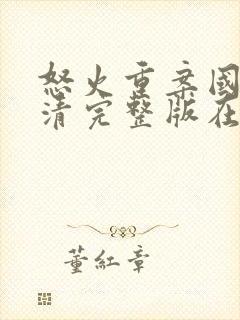 怒火重案國
清完整版在
董紅章